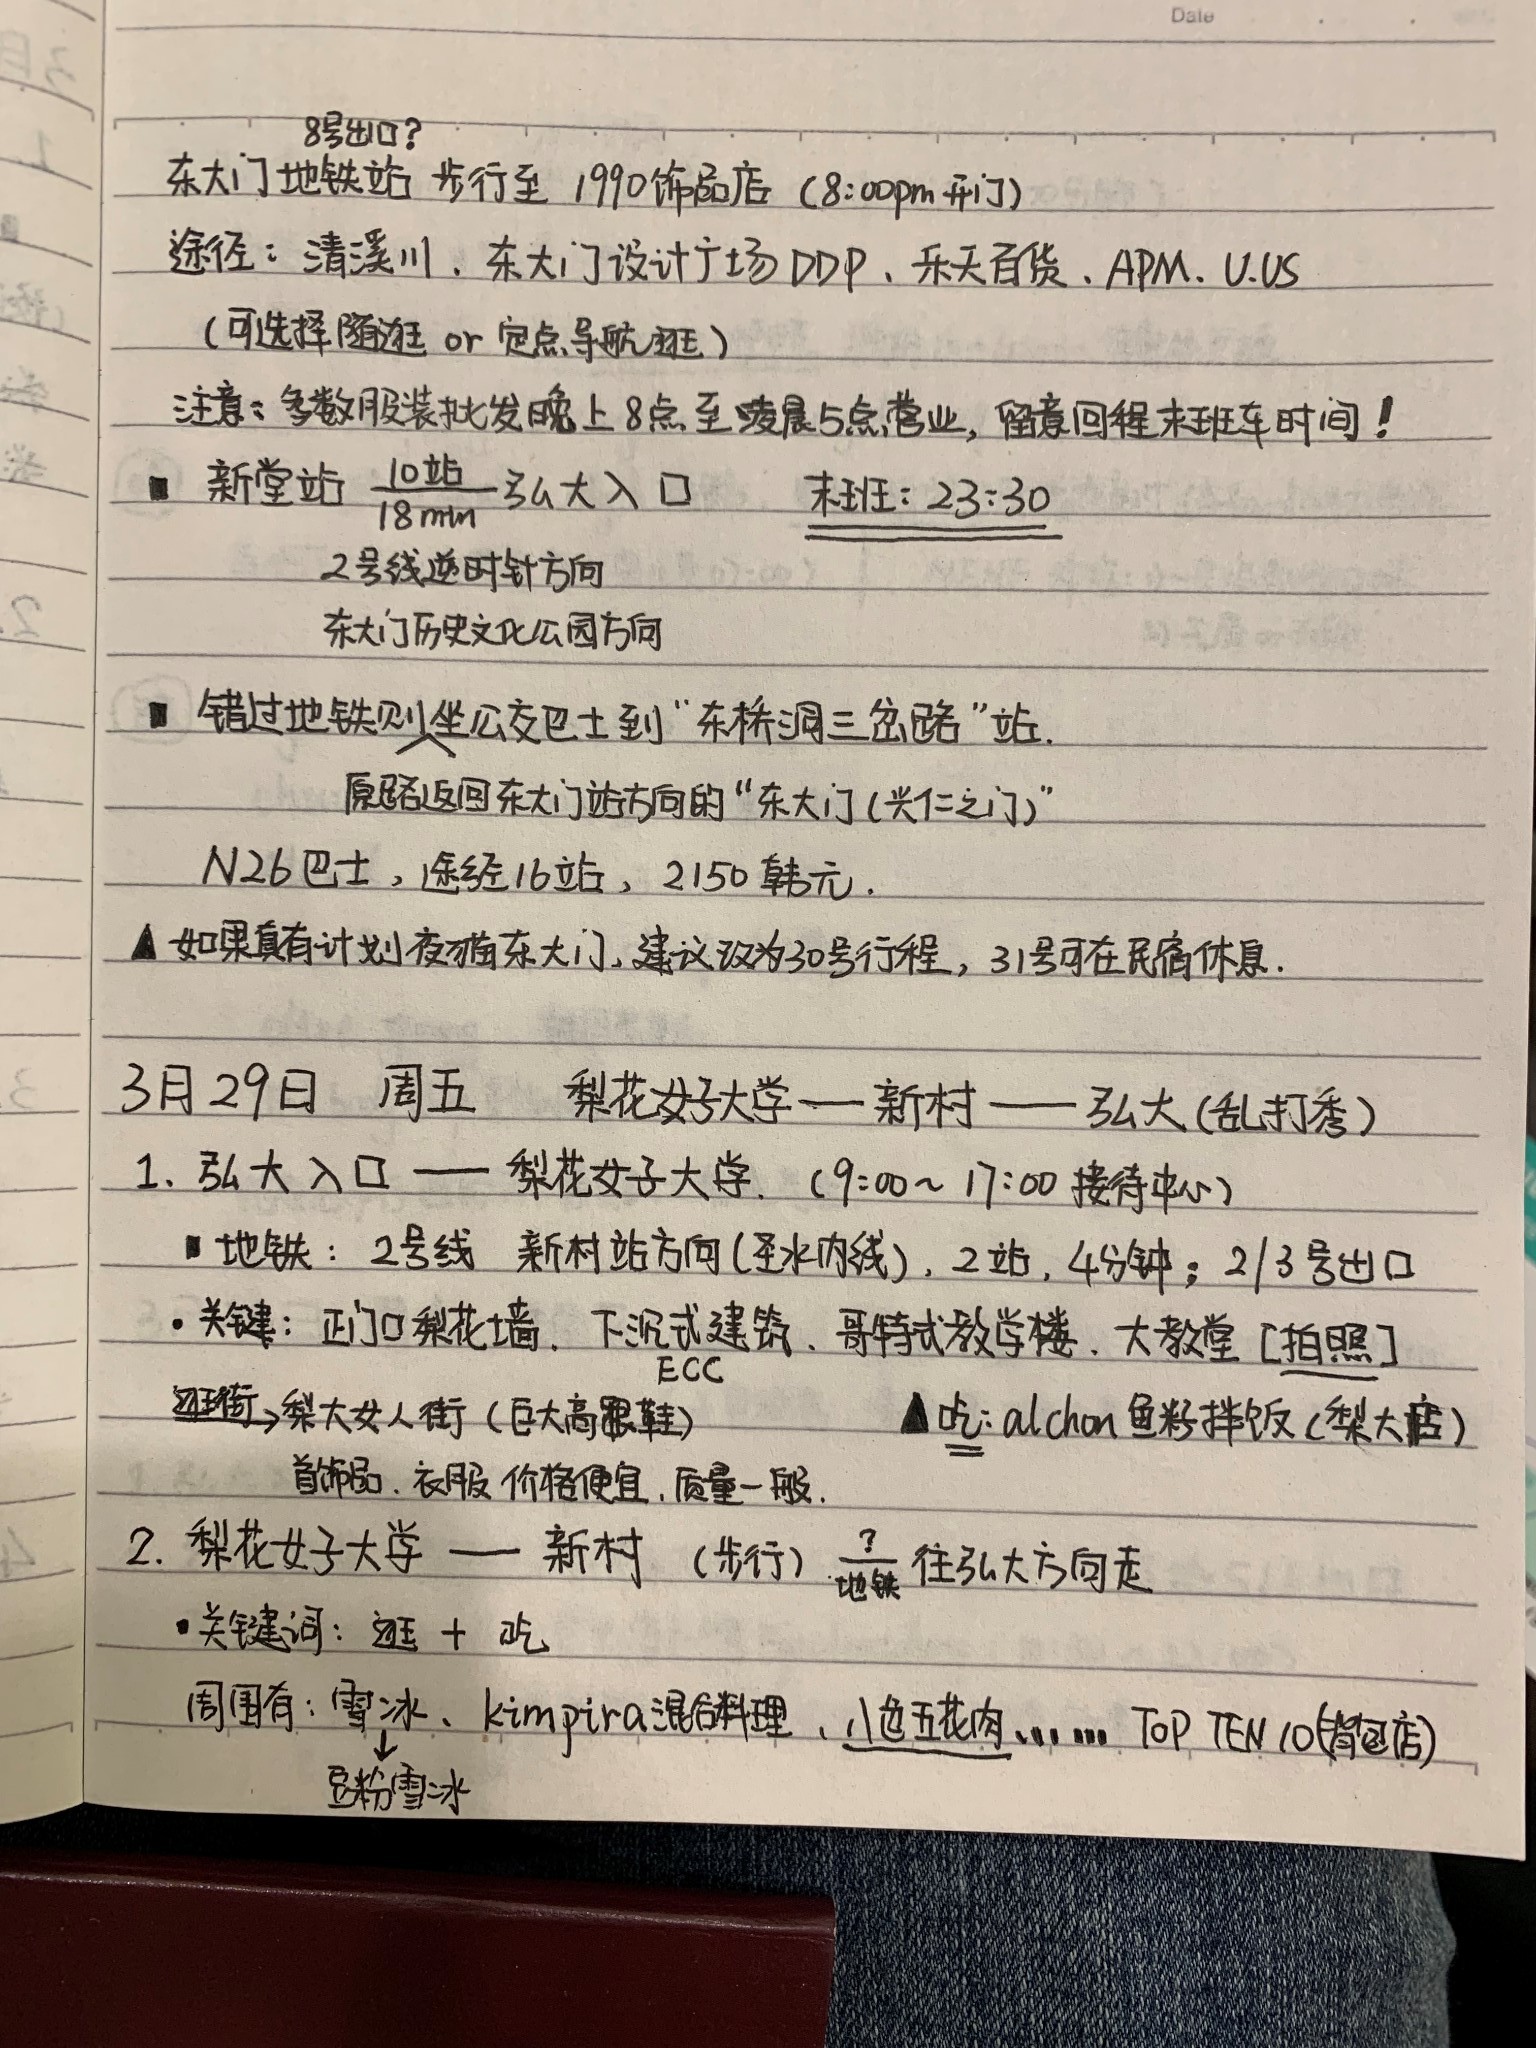 Date
8号出口?
东大门地铁站 步行至 1990饰品店 (8:00pm开门)
途径: 清溪川、东大门设计广场DDP、乐天百货、APM、U.US
(可选择随逛 or 定点导航逛)
注意: 多数服装批发晚上8点至凌晨5点营业, 留意回程末班车时间!
■ 新堂站 10站/18min 弘大入口 末班: 23:30
2号线逆时针方向
东大门历史文化公园方向
■ 错过地铁则坐公交巴士到“东桥洞三岔路”站.
原路返回东大门站方向的“东大门(兴仁之门)”
N26巴士, 途经16站, 2150韩元.
▲如果真有计划夜猫东大门, 建议改为30号行程, 31号可在民宿休息.
3月29日 周五 梨花女子大学—新村—弘大(乱打秀)
1. 弘大入口 — 梨花女子大学. (9:00~17:00 接待中心)
■ 地铁: 2号线 新村站方向(圣水内线), 2站, 4分钟; 2/3号出口
• 关键: 正门口梨花墙、下沉式建筑、哥特式教学楼、大教堂 [拍照]
ECC
逛街→梨大女人街 (巨大高跟鞋) ▲吃: alchon鱼籽拌饭(梨大店)
首饰品、衣服 价格便宜, 质量一般.
2. 梨花女子大学 — 新村 (步行) ?/地铁 往弘大方向走
• 关键词: 逛 + 吃
周围有: 雪冰、kimpira混合料理、八色五花肉、…… TOP TEN 10(背包店)
↓
豆粉雪冰